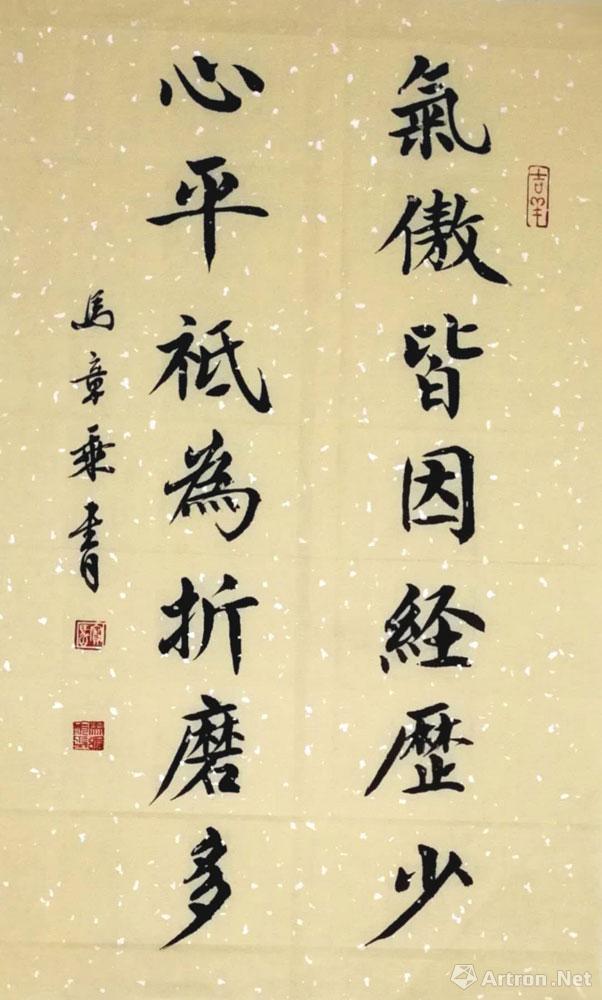 氣傲皆因経歷少
心平祗為折磨多
馬章乘書
吉羊
Artron.Net